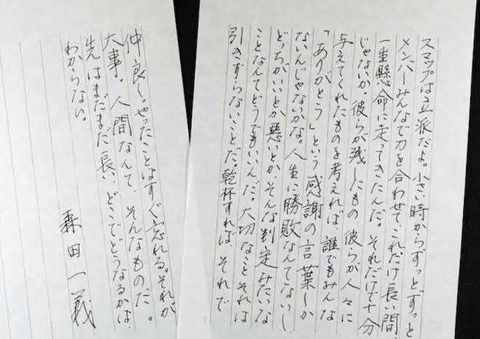 スマップは立派だよ。小さい時からずっとずっと
メンバーみんなで力を合わせてこれだけ長い間、
一生懸命に走ってきたんだ。それだけで十分
じゃないか。彼らが残したもの彼らが人々に
与えてくれたものを考えれば、誰でもみんな
「ありがとう」という感謝の言葉しか
ないんじゃないかな。人生に勝敗なんてないし
どっちがいいとか悪いとかそんな判定みたいな
ことなんてどうでもいいんだ。大切なことそれは
引きずらないことだ。乾杯すれば、それで
仲良し。やったことはすぐ忘れる。それが
大事。人間なんて、そんなものだ。
先はまだまだ長い…どこでどうなるかは、
わからない。
森田一義